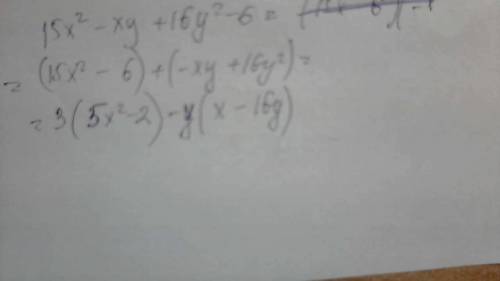 15x² - xy + 16y² - 6 =
= (15x² - 6) + (-xy + 16y²) =
= 3(5x² - 2) - y(x - 16y)